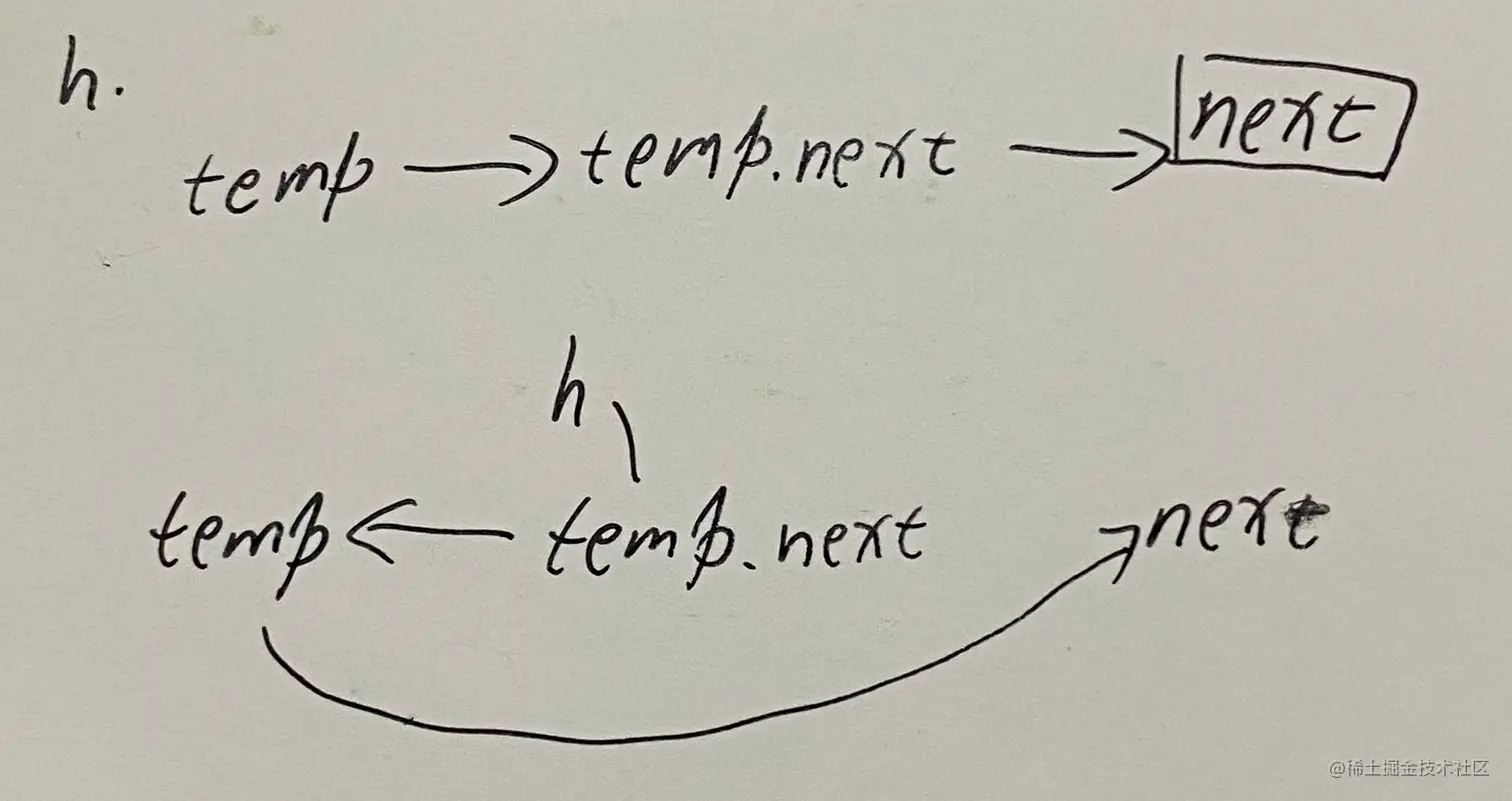 h.
temp → temp.next → next
h
temp ← temp.next next
@稀土掘金技术社区